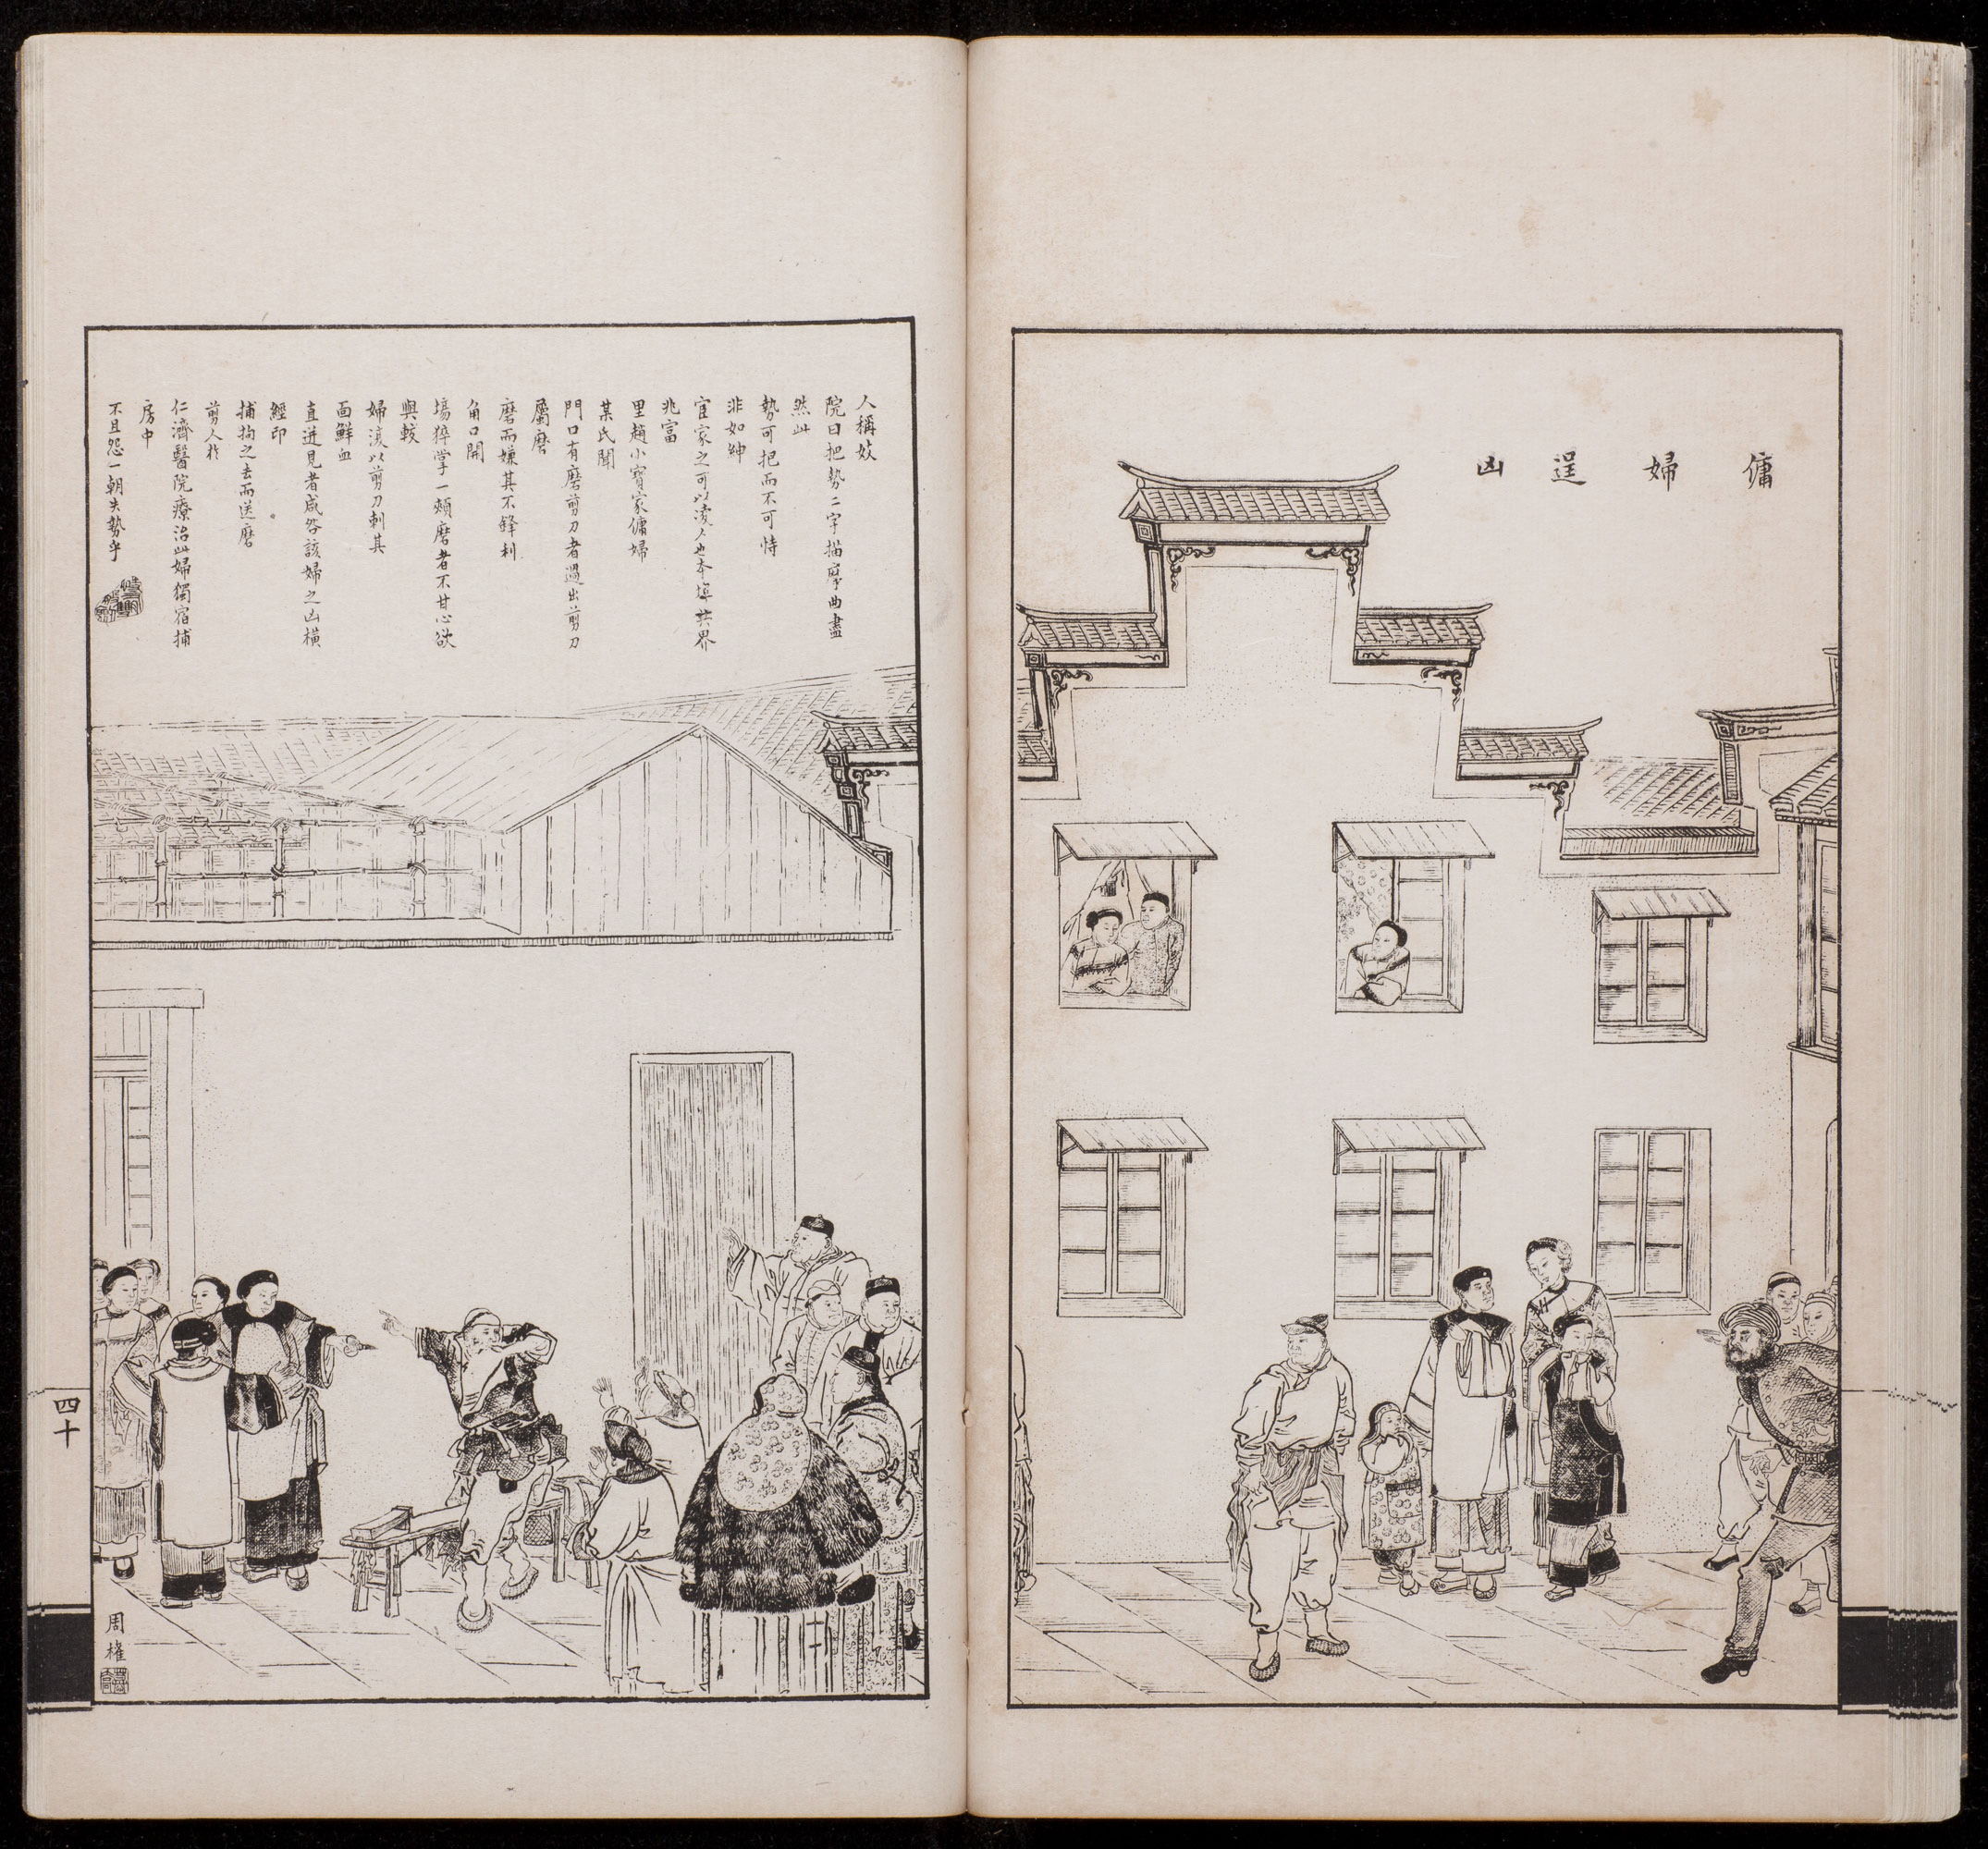 傭婦逞凶
人稱妓
院曰把勢二字描摩曲盡
然此
勢可把而不可恃
非如紳
宦家之可以凌人也本埠英界
兆富
里趙小寶家傭婦
某氏聞
門口有磨剪刀者過出剪刀
屬磨
磨而嫌其不鋒利
角口開
場猝掌一頰磨者不甘心欲
與較
婦復以剪刀刺其
面鮮血
直迸見者咸咎該婦之凶橫
經印
捕拘之去而送磨
剪人於
仁濟醫院療治此婦獨宿捕
房中
不且怨一朝失勢乎
四十
周權